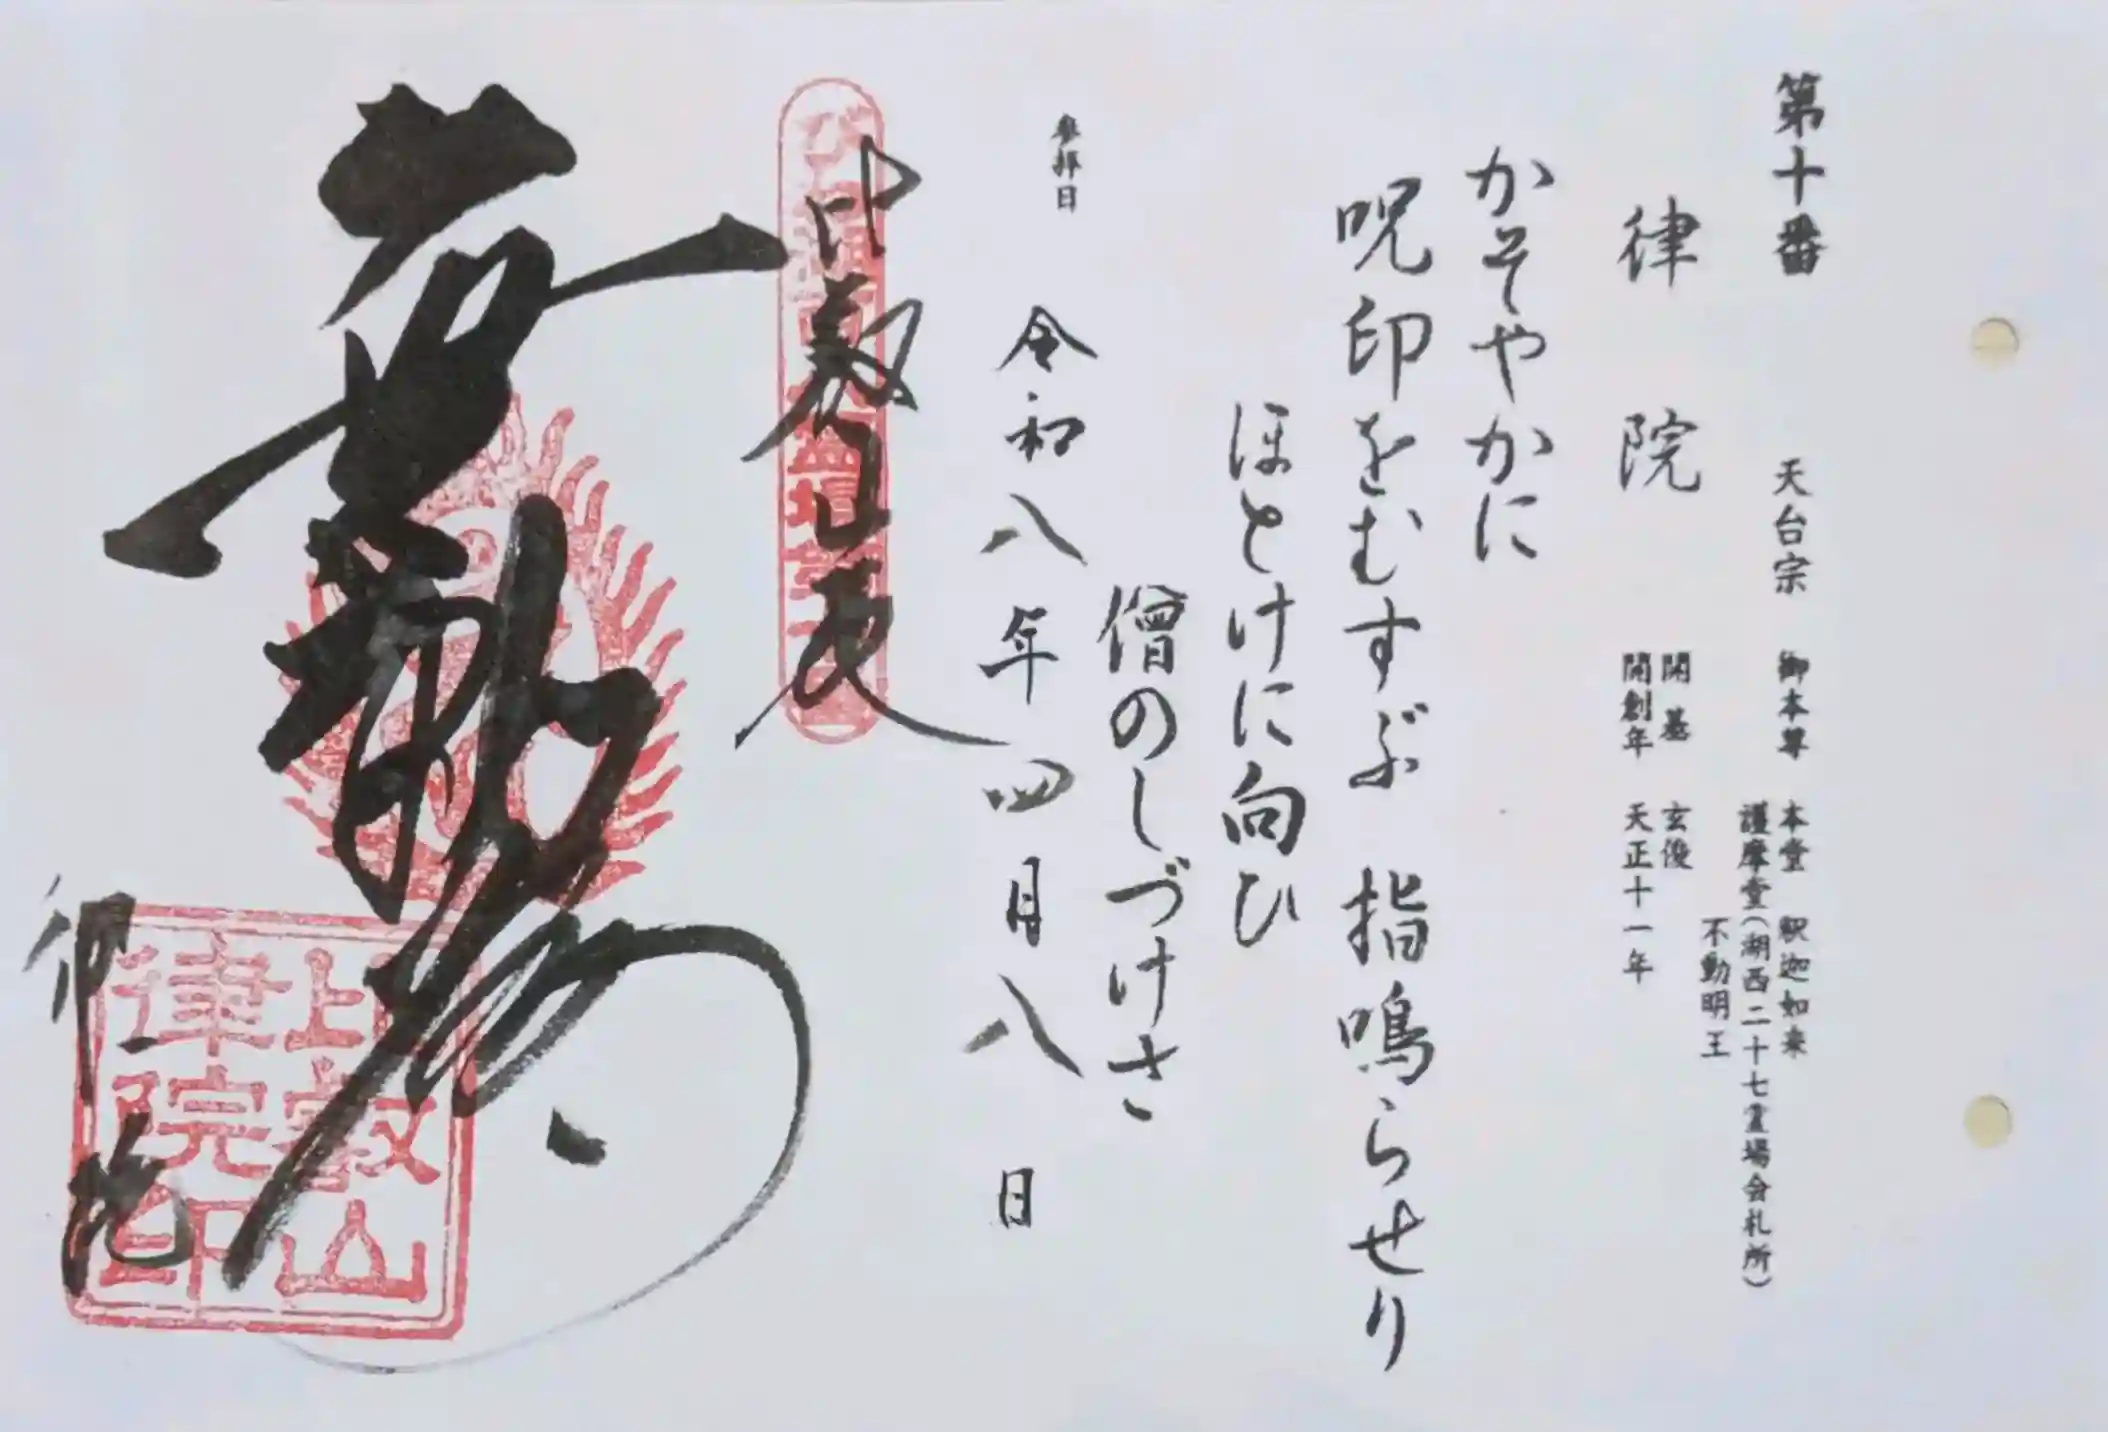 第十番
天台宗 御本尊 本堂 釈迦如来
護摩堂(湖西二十七霊場会札所)
不動明王
律院
開基 玄俊
開創年 天正十一年
かそやかに
呪印をむすぶ 指鳴らせり
ほとけに向ひ
僧のしづけさ
参拝日
令和八年四月八日
比叡山
律院
比叡山
律院印